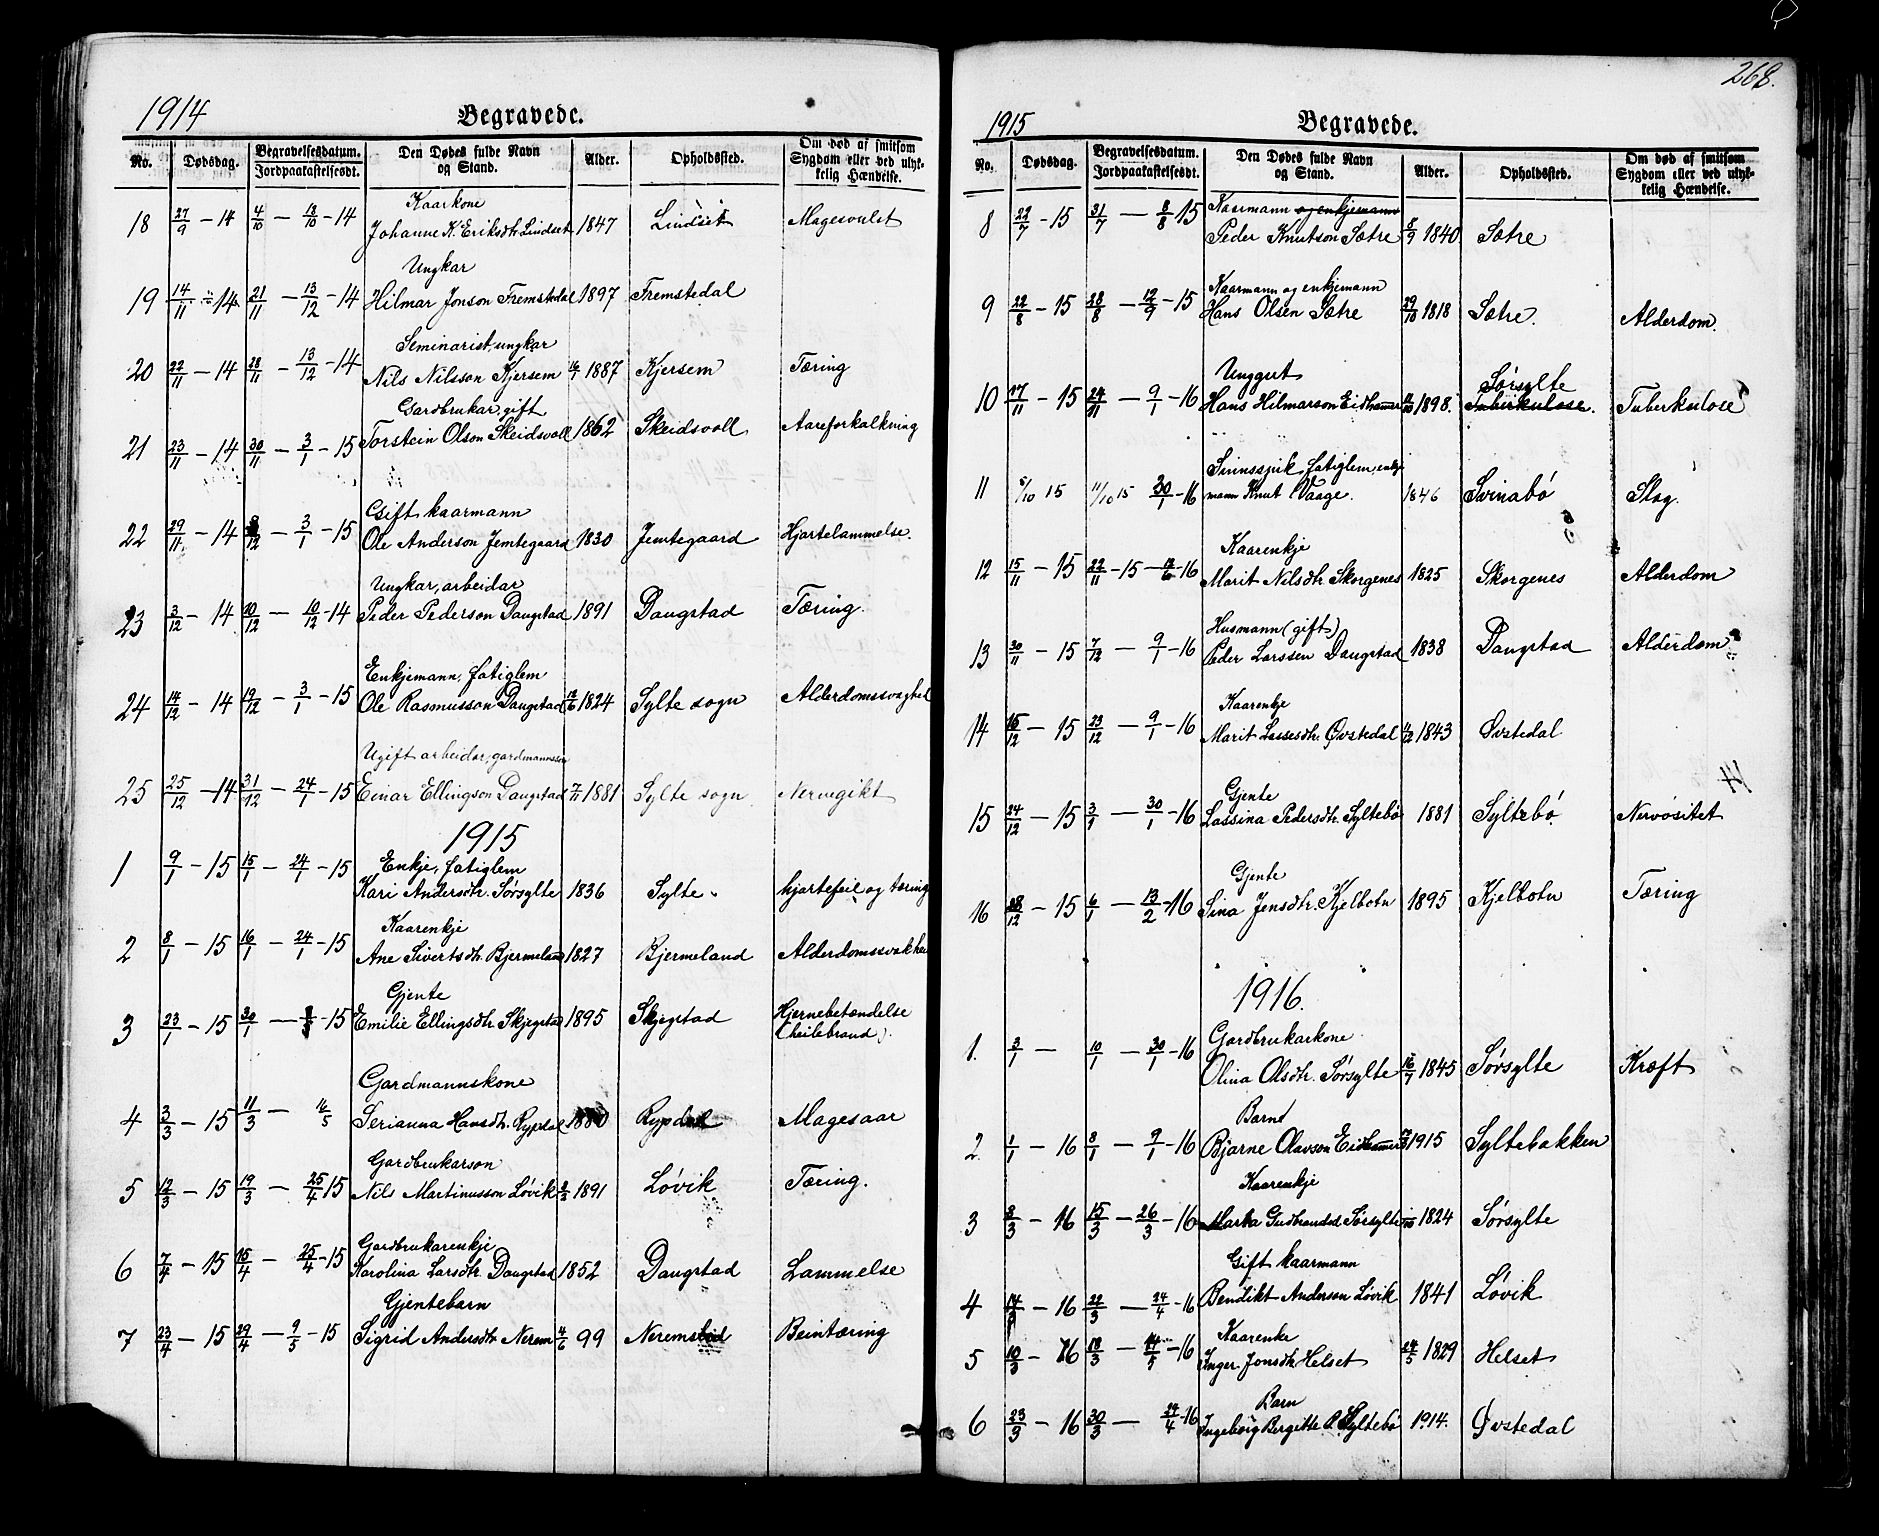 268.
1914 Begravede.
No. Dødsdag. Begravelsesdatum. Jordpaakastelsesdt. Den Dødes fulde Navn og Stand. Alder. Opholdssted. Om død af smitsom Sygdom eller ved ulykkelig Hændelse.
Kaarkone
18 27/9 - 14 4/10 - 18/10 - 14 Johanne K. Eriksdtr. Lindset 1847 Lindset Magesvulst
Ungkar
19 14/11 - 14 21/11 - 13/12 - 14 Hilmar Jonson Fremstedal 1897 Fremstedal
Seminarist, ungkar
20 22/11 - 14 28/11 - 13/12 - 14 Nils Nilsson Kjersem 1887 Kjersem Tæring
Gardbrukar, gift
21 23/11 - 14 30/11 - 3/1 - 15 Torstein Olson Skeidsvoll 1862 Skeidsvoll Aareforkalkning
Gift kaarmann
22 29/11 - 14 /12 - 3/1 - 15 Ole Anderson Jemtegaard 1830 Jemtegaard Hjartelammelse.
Ungkar, arbeidar
23 3/12 - 14 10/12 - 10/12 - 14 Peder Pederson Daugstad 1891 Daugstad Tæring.
Enkjemann, fatiglem
24 14/12 - 14 19/12 - 3/1 - 15 Ole Rasmusson Daugstad 1824 Sylte sogn Alderdomssvaghed
Ugift arbeidar, gardmannsson
25 25/12 - 14 31/12 - 24/1 - 15 Einar Ellingson Daugstad 7/11 1881 Sylte sogn Nervegikt
1915
Enkje, fatiglem
1 9/1 - 15 15/1 - 24/1 - 15 Kari Andersdtr. Sørsylte 1836 Sylte hjartefeil og tæring
Kaarenkje
2 8/1 - 15 16/1 - 24/1 - 15 Ane Sivertsdtr. Bjermeland 1827 Bjermeland Alderdomssvakhe
Gjente
3 23/1 - 15 30/1 - - 15 Emilie Ellingsdtr. Skjegstad 1895 Skjegstad Hjernebetændelse
(heilebrand).
Gardmannskone
4 3/3 - 15 11/3 - 16/5 Serianna Hansdtr. Rypdal 1880 Rypdal Magesaar
Gardbrukarson
5 12/3 - 15 19/3 - 25/4 15 Nils Martinusson Løvik 2/3 1891 Løvik Tæring.
Gardbrukarenkje
6 7/4 - 15 15/4 - 25/4 - 15 Karolina Larsdtr. Daugstad 1852 Daugstad Lammelse
Gjentebarn
7 23/4 - 15 29/4 - 9/5 - 15 Sigrid Andersdtr. Nerem 4/6 99 Nerem Beintæring
1915 Begravede.
No. Dødsdag. Begravelsesdatum. Jordpaakastelsesdt. Den Dødes fulde Navn og Stand. Alder. Opholdssted. Om død af smitsom Sygdom eller ved ulykkelig Hændelse.
Kaarmann og enkjemann
8 22/7 - 15 31/7 - 8/8 15 Peder Knutson Sætre 8/9 1840 Sætre
Kaarmann og enkjemann
9 22/8 - 15 28/8 - 12/9 - 15 Hans Olsen Sætre 29/10 1818 Sætre. Alderdom.
Unggut Sørsylte
10 17/11 - 15 24/11 - 9/1 - 16 Hans Hilmarson Eidhamer 1898. Tuberkulose. Tuberkulose
Sinnssjuk, fatiglem, enkje-
11 5/10 15 11/10 15 30/1 - 16 mann Knut Vaage. 1846 Svinabø Slag.
Kaarenkje
12 15/11 - 15 22/11 - 15 - 16 Marit Nilsdtr. Skorgenes 1825 Skorgenes Alderdom
Husmann (gift)
13 30/11 - 15 7/12 - 9/1 - 16 Peder Larssen Daugstad 1838 Daugstad Alderdom
Kaarenkje
14 15/12 - 15 23/12 - 9/1 - 16 Marit Lassesdtr. Øvstedal 1843 Øvstedal
Gjente
15 24/12 - 15 3/1 - 30/1 - 16 Lassina Pedersdtr. Syltebø 1881 Syltebø Nervøsitet
Gjente
16 28/12 - 15 6/1 - 13/2 - 16 Sina Jensdtr. Kjelbotn 1895 Kjelbotn Tæring
1916.
Gardbrukarkone
1. 3/1 - 10/1 - 30/1 - 16 Olina Olsdtr. Sørsylte 16/7 1845 Sørsylte Kræft
Barnt
2. 1/1 - 16 8/1 - 9/1 - 16 Bjarne Olavson Eidhamer 1915 Syltebakken
Kaarenkje
3 8/3 - 16 15/3 - 26/3 - 16 Marta Gudbrandsd Sørsylte 1824 Sørsylte
Gift kaarmann
4 14/3 - 16 22/3 - 24/4 - 16 Bendikt Anderson Løvik 1841 Løvik
Kaarenke
5 10/3 - 16 18/3 - 14/5 - 16 Inger Jonsdtr Helset 24/5 1829 Helset
Barn
6 23/3 - 16 30/3 - 24/4 - 16 Ingeborg Bergitte Syltebø 1914. Øvstedal